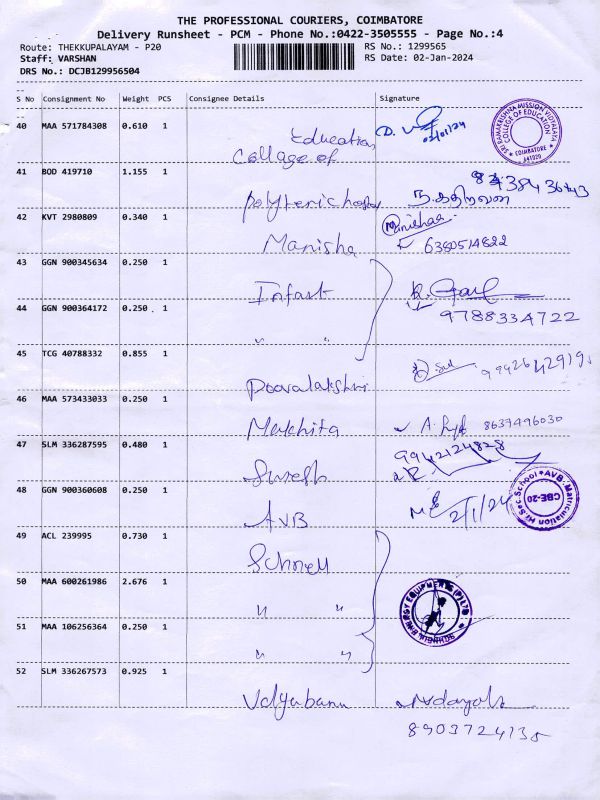 THE PROFESSIONAL COURIERS, COIMBATORE
Delivery Runsheet - PCM - Phone No.:0422-3505555 - Page No.:4
Route: THEKKUPALAYAM - P20 RS No.: 1299565
Staff: VARSHAN RS Date: 02-Jan-2024
DRS No.: DCJB129956504
S No Consignment No Weight PCS Consignee Details Signature
40 MAA 571784308 0.610 1 Education College of 02/01/24
SRI RAMAKRISHNA MISSION VIDYALAYA COLLEGE OF EDUCATION COIMBATORE 641020
41 BOD 419710 1.155 1
42 KVT 2980809 0.340 1 Manisha Manishaa 6380514822
43 GGN 900345634 0.250 1 Infant
44 GGN 900364172 0.250 1 " " 9788334722
45 TCG 40788332 0.855 1 Poovalakshmi
46 MAA 573433033 0.250 1 8637496030
47 SLM 336287595 0.480 1 Suresh 9942124828
48 GGN 900360608 0.250 1 AVB 2/1/24
AVB Matriculation Hr. Sec. School CBE-20
49 ACL 239995 0.730 1 Schnell
50 MAA 600261986 2.676 1 " "
SCHNELL ENERGY EQUIPMENTS (P) LTD
51 MAA 106256364 0.250 1 " "
52 SLM 336267573 0.925 1 8903724135